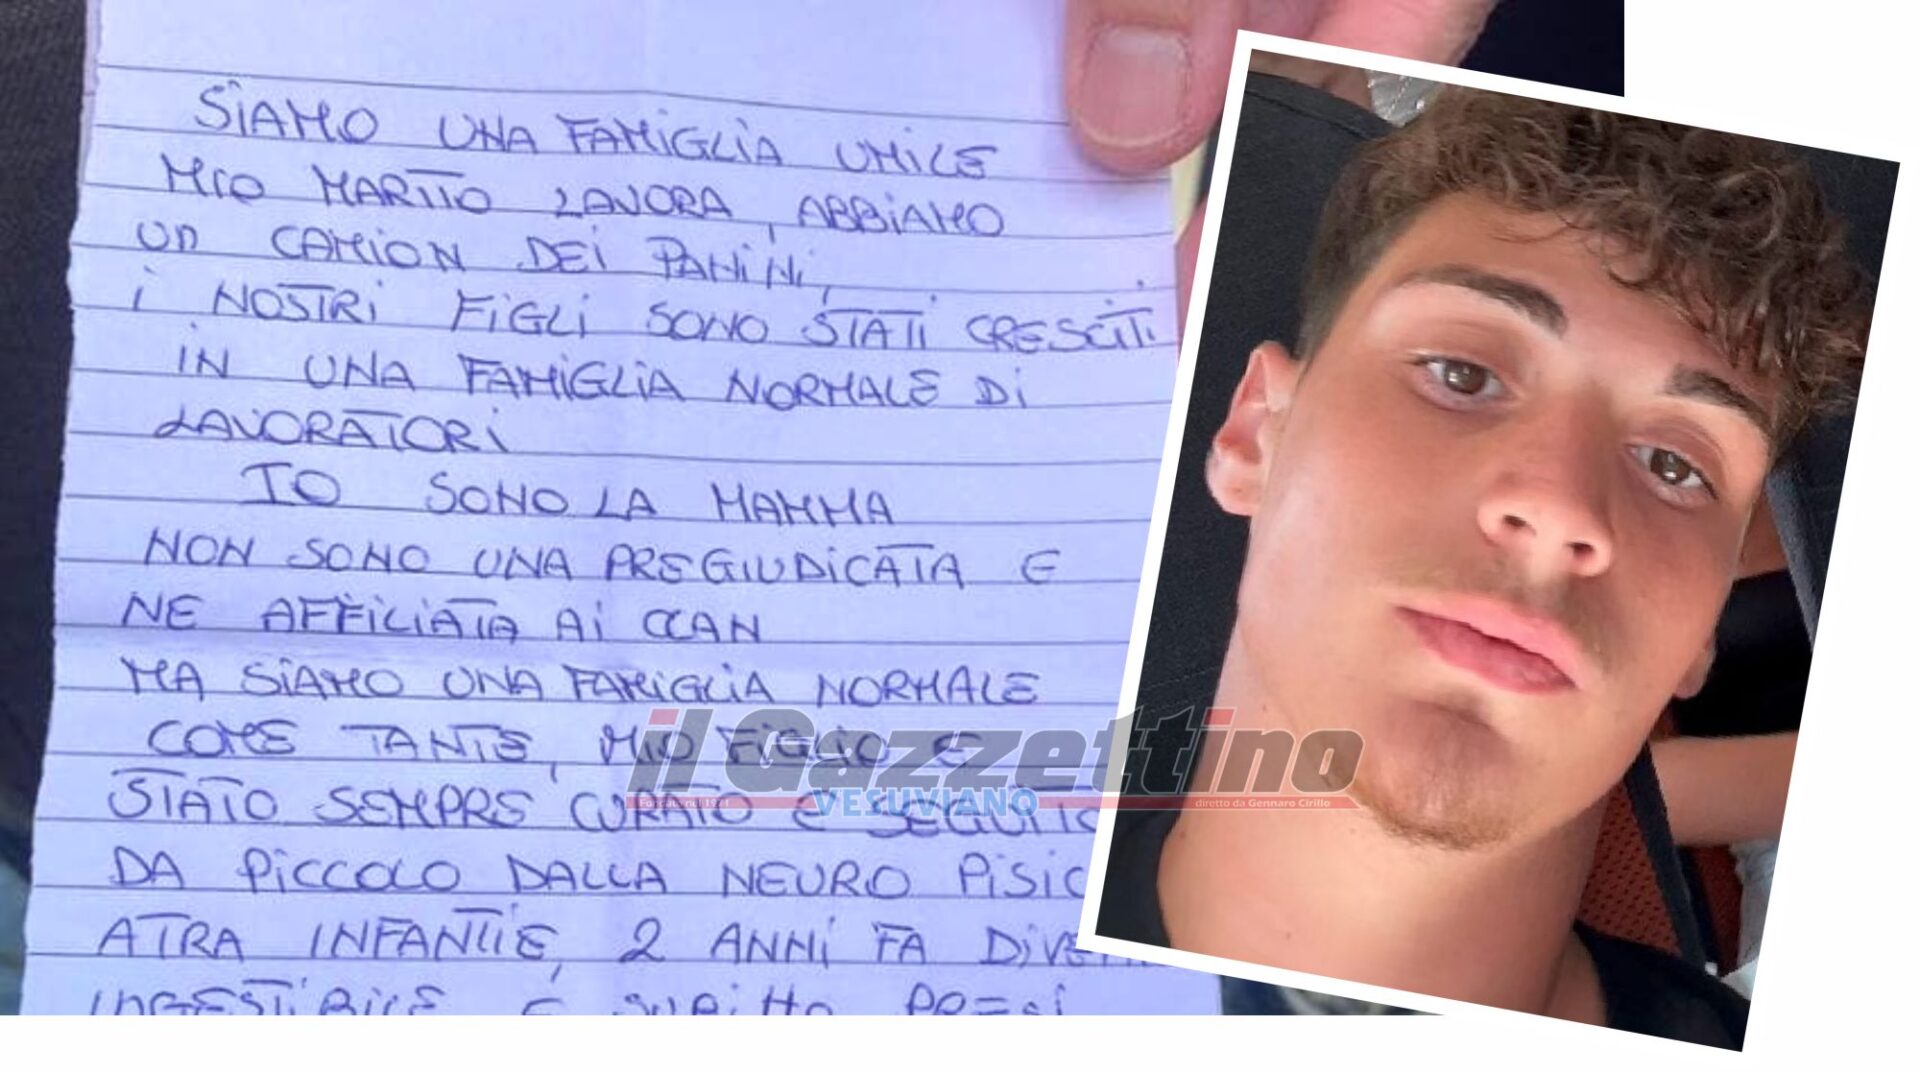 SIAMO UNA FAMIGLIA UMILE
MIO MARITO LAVORA, ABBIAMO
UN CAMION DEI PANINI,
I NOSTRI FIGLI SONO STATI CRESCITI
IN UNA FAMIGLIA NORMALE DI
LAVORATORI
IO SONO LA MAMMA
NON SONO UNA PREGIUDICATA E
NE AFFILIATA AI CLAN
MA SIAMO UNA FAMIGLIA NORMALE
COME TANTE, MIO FIGLIO E
STATO SEMPRE CURATO E SEGUITO
DA PICCOLO DALLA NEURO PISIC
ATRA INFANTIE, 2 ANNI FA DIVE
INGESTIBILE E SUBITTO PRESI
il Gazzettino
Fondato nel 1971 VESUVIANO diretto da Gennaro Cirillo